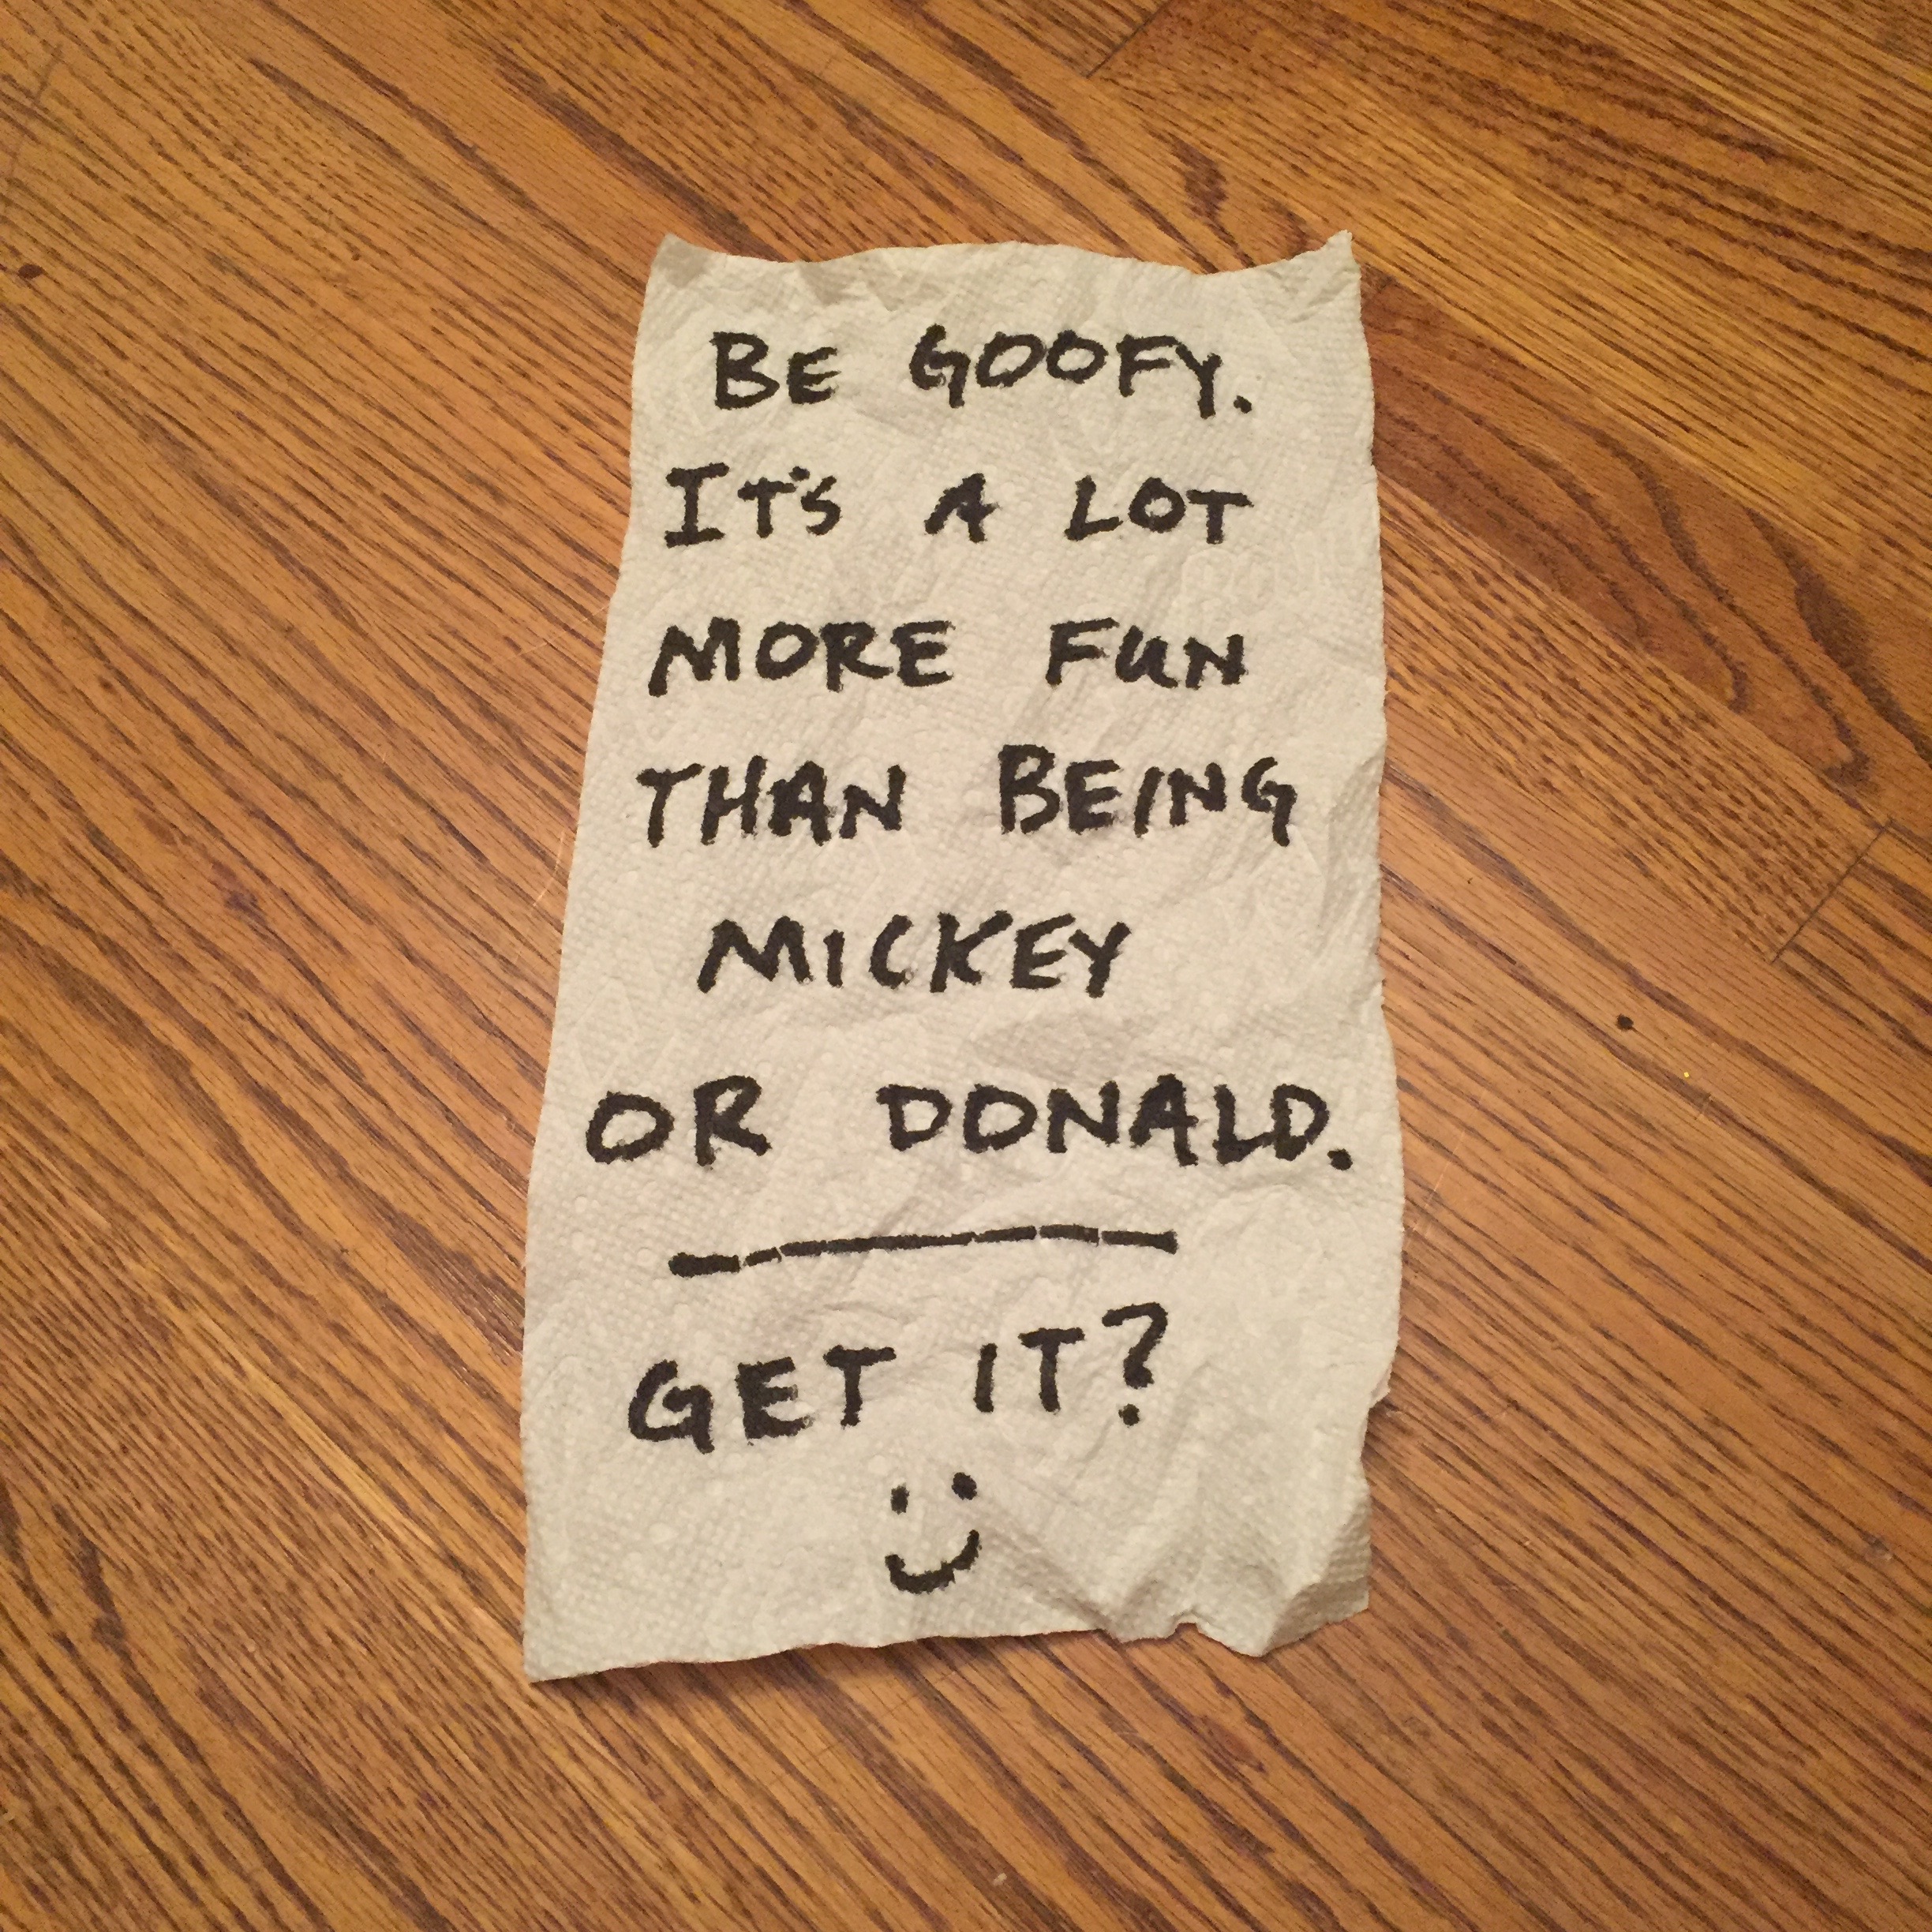 BE GOOFY.
IT'S A LOT
MORE FUN
THAN BEING
MICKEY
OR DONALD.
GET IT?